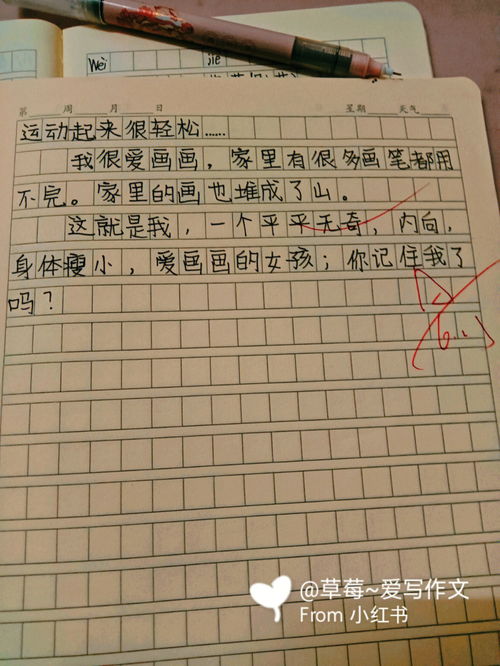 Wei
jie
第 周 月 日 星期 天气
运动起来很轻松……
我很爱画画，家里有很多画笔都用
不完。家里的画也堆成了山。
这就是我，一个平平无奇，内向，
身体瘦小，爱画画的女孩；你记住我了
吗？
@草莓~爱写作文
From 小红书